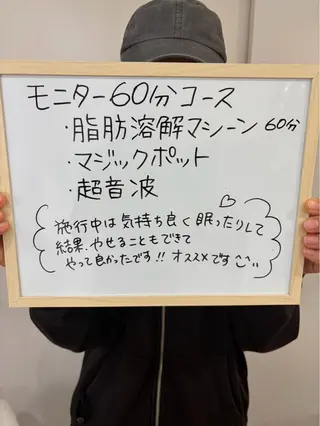 モニター60分コース
・脂肪溶解マシーン 60分
・マジックポット
・超音波
施行中は気持ち良く眠ったりして
結果、やせることもできて
やって良かったです!! オススメです